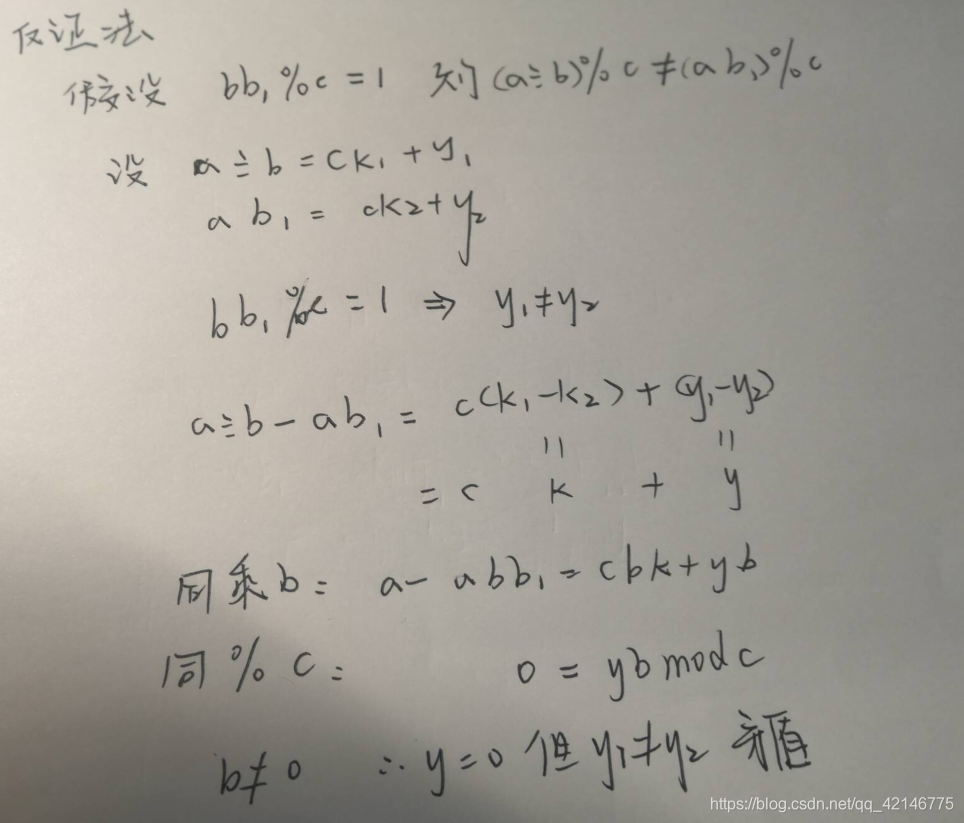 反证法
假设 bb₁%c=1 则(a÷b)%c≠(ab₁)%c
设 a÷b=ck₁+y₁
ab₁=ck₂+y₂
bb₁%c=1⇒y₁≠y₂
a÷b-ab₁=c(k₁-k₂)+(y₁-y₂)
=c k + y
同乘b: a-abb₁=cbk+yb
同%c: 0=yb mod c
b≠0 ∴y=0 但y₁≠y₂ 矛盾
https://blog.csdn.net/qq_42146775